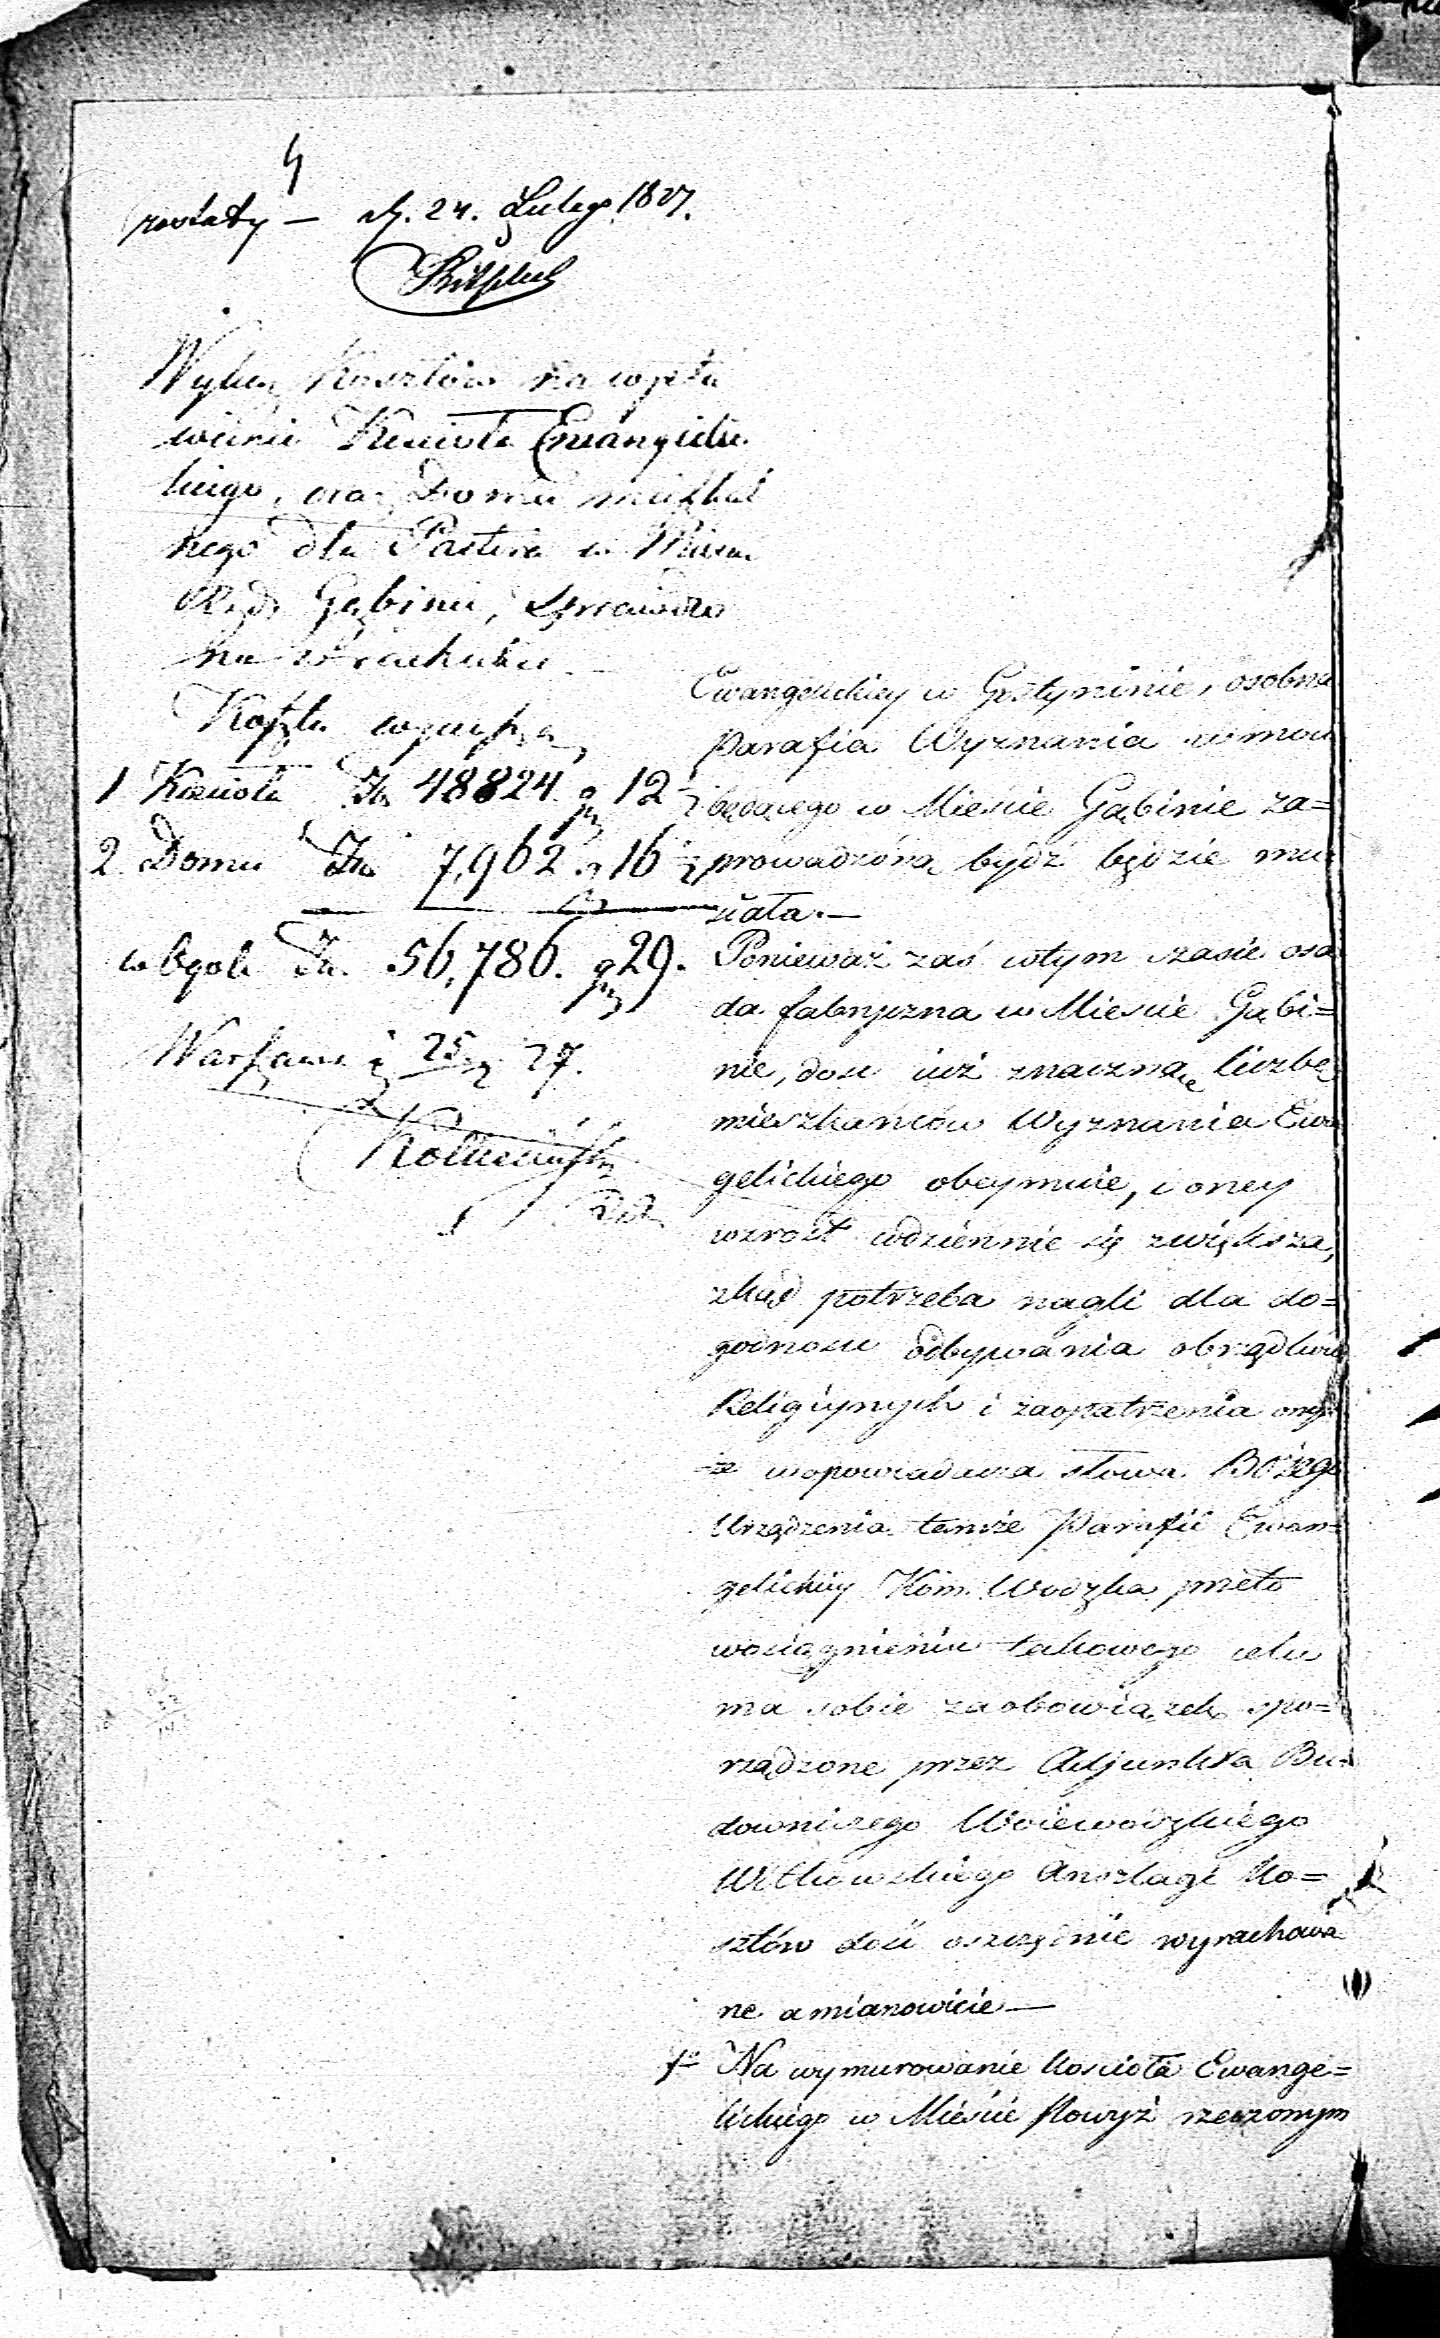 4
zostały — d. 24. Lutego 1827.
Wykaz Kosztów na wysta
wienie Kościoła Ewangielic
kiego, oraz Domu mieszkal
nego dla Pastora w Mieście
Rząd. Gąbinie, sprawdzo
na w rachunku
Koszta wynoszą
1 Kościoła Zł. 48824 gr 12½
2 Domu Zł. 7,962 gr 16½
w Ogóle Zł. 56,786. gr 29.
Warszawa d 25/2 27.
Ewangelickiey w Gostyninie, osobna
Parafia Wyznania w mowie
będącego w Miescie Gąbinie za=
prowadzóną bydź będzie mu=
siała. —
Ponieważ zaś w tym czasie osa
da fabryczna w Miescie Gąbi=
nie, dosc iuż znaczną liczbę
mieszkańców Wyznania Ewan
gelickiego obeymuie, i oney
wzrost codziennie się zwiększa,
zkąd potrzeba nagli dla do=
godnosci odbywania obrządków
Religiynych i zaopatrzenia oney
że w opowiadacza słowa Bożego
Urządzenia tamże Parafii Ewan=
gelickiey Kom. Wodzka przeto
w osiągnieniu takowego celu
ma sobie za obowiązek spo=
rządzone przez Adjunkta Bu=
downiczego Woiewodzkiego
Witkowskiego Anszlagi ko=
sztów dość oszczędnie wyrachowa
ne a mianowicie —
1º Na wymurowanie kosciola Ewange=
lickiego w Mieście Powyż rzeczonym